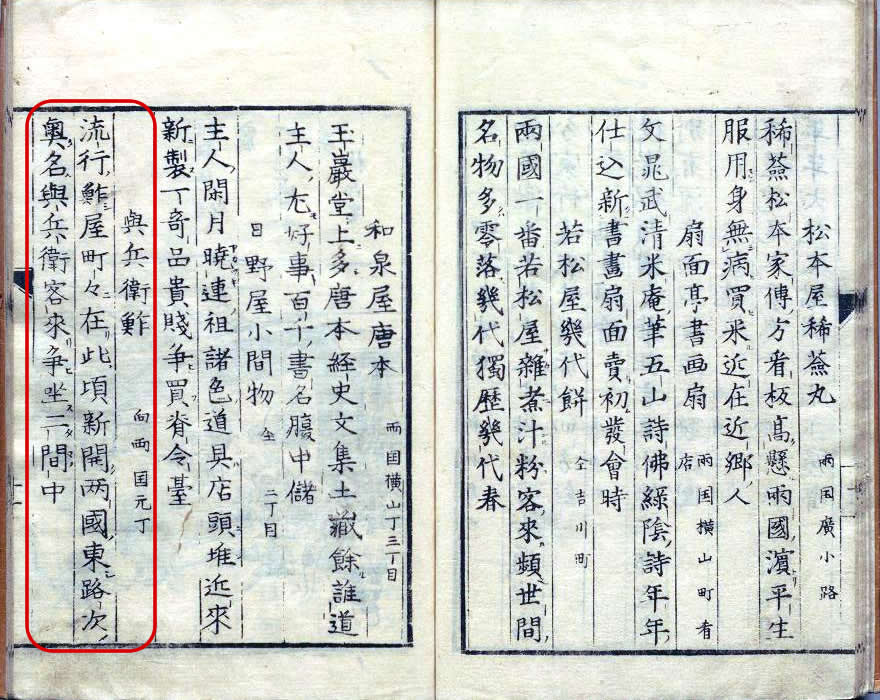 松本屋稀薟丸 兩国廣小路
稀薟松本家傳方看板高懸兩國濵平生
服用身無病買米近在近鄉人
扇面亭書画扇 兩国横山町看店
文晁武清米庵筆五山詩佛綠陰詩年年
仕込新書畫扇面賣初發會時
若松屋幾代餅 仝吉川町
兩國一番若松屋雜煮汁粉客來頻世間
名物多零落幾代獨歴幾代春
和泉屋唐本 兩国横山丁三丁目
玉巖堂上多唐本經史文集土藏餘誰道
主人尤好事百千書名腹中儲
日野屋小間物 仝二丁目
主人閑月曉連祖諸色道具店頭堆近來
新製丁奇品貴賤爭買脊令臺
與兵衛鮓 向両国元丁
流行鮓屋町々在此頃新開兩國東路次
奥名與兵衛客來爭坐二間中